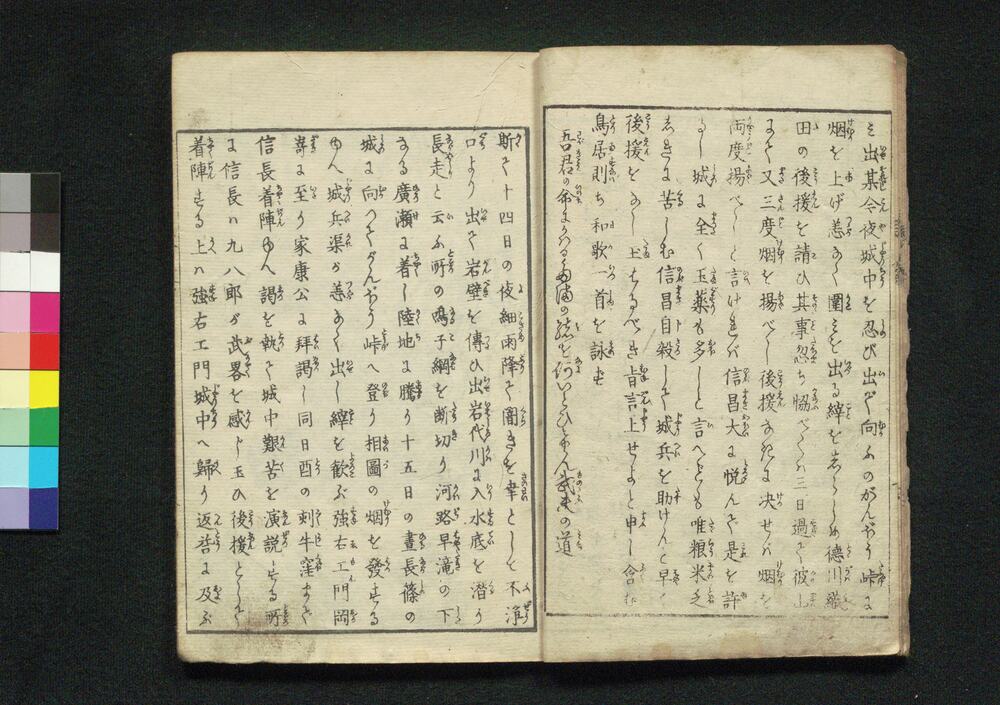 ミ出某今夜城中を忍び出で向ふのがんぼう峠に
烟を上げ恙なく囲ミを出る縡を知らしめ徳川織
田の後援を請ひ其事忽ち協べくハ三日過て彼山
にて又三度烟を揚べし後援なきに决せバ烟を
両度揚べしと言けれバ信昌大に悦んで是を許
し城に全く玉薬も多しと言へども唯粮米乏
しきに苦しむ信昌自殺して城兵を助けんと早く
後援をなし玉はるべき旨言上せよと申し含む
鳥居則ち和歌一首を詠ず
吾君の命にかはる玉の緒を何いとひけん武士の道
斯て十四日の夜細雨降て闇きを幸として不浄
口より出て岩壁を傳ひ出岩代川に入水底を潜り
長走と云ふ所の鳴子綱を断切り河路早滝の下
なる廣瀬に着し陸地に騰り十五日の晝長篠の
城に向つてがんぼう峠へ登り相圖の烟を發する
ゆへ城兵渠が善なく出し縡を歓ぶ強右エ門岡
嵜に至り家康公に拜謁し同日酉の刺牛窪まで
信長着陣ゆへ謁を執て城中艱苦を演説する所
に信長ハ九八郎が武畧を感じ玉ひ後援として
着陣する上ハ強右エ門城中へ歸り返答に及ぶ